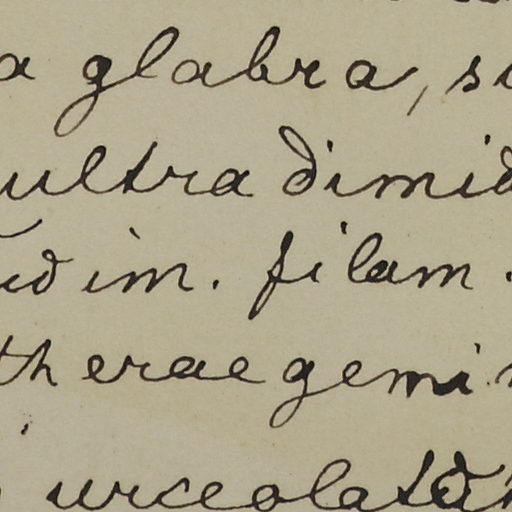 a glabra, su
ultra dimid
idim. filam.
therae gemin
urceolat